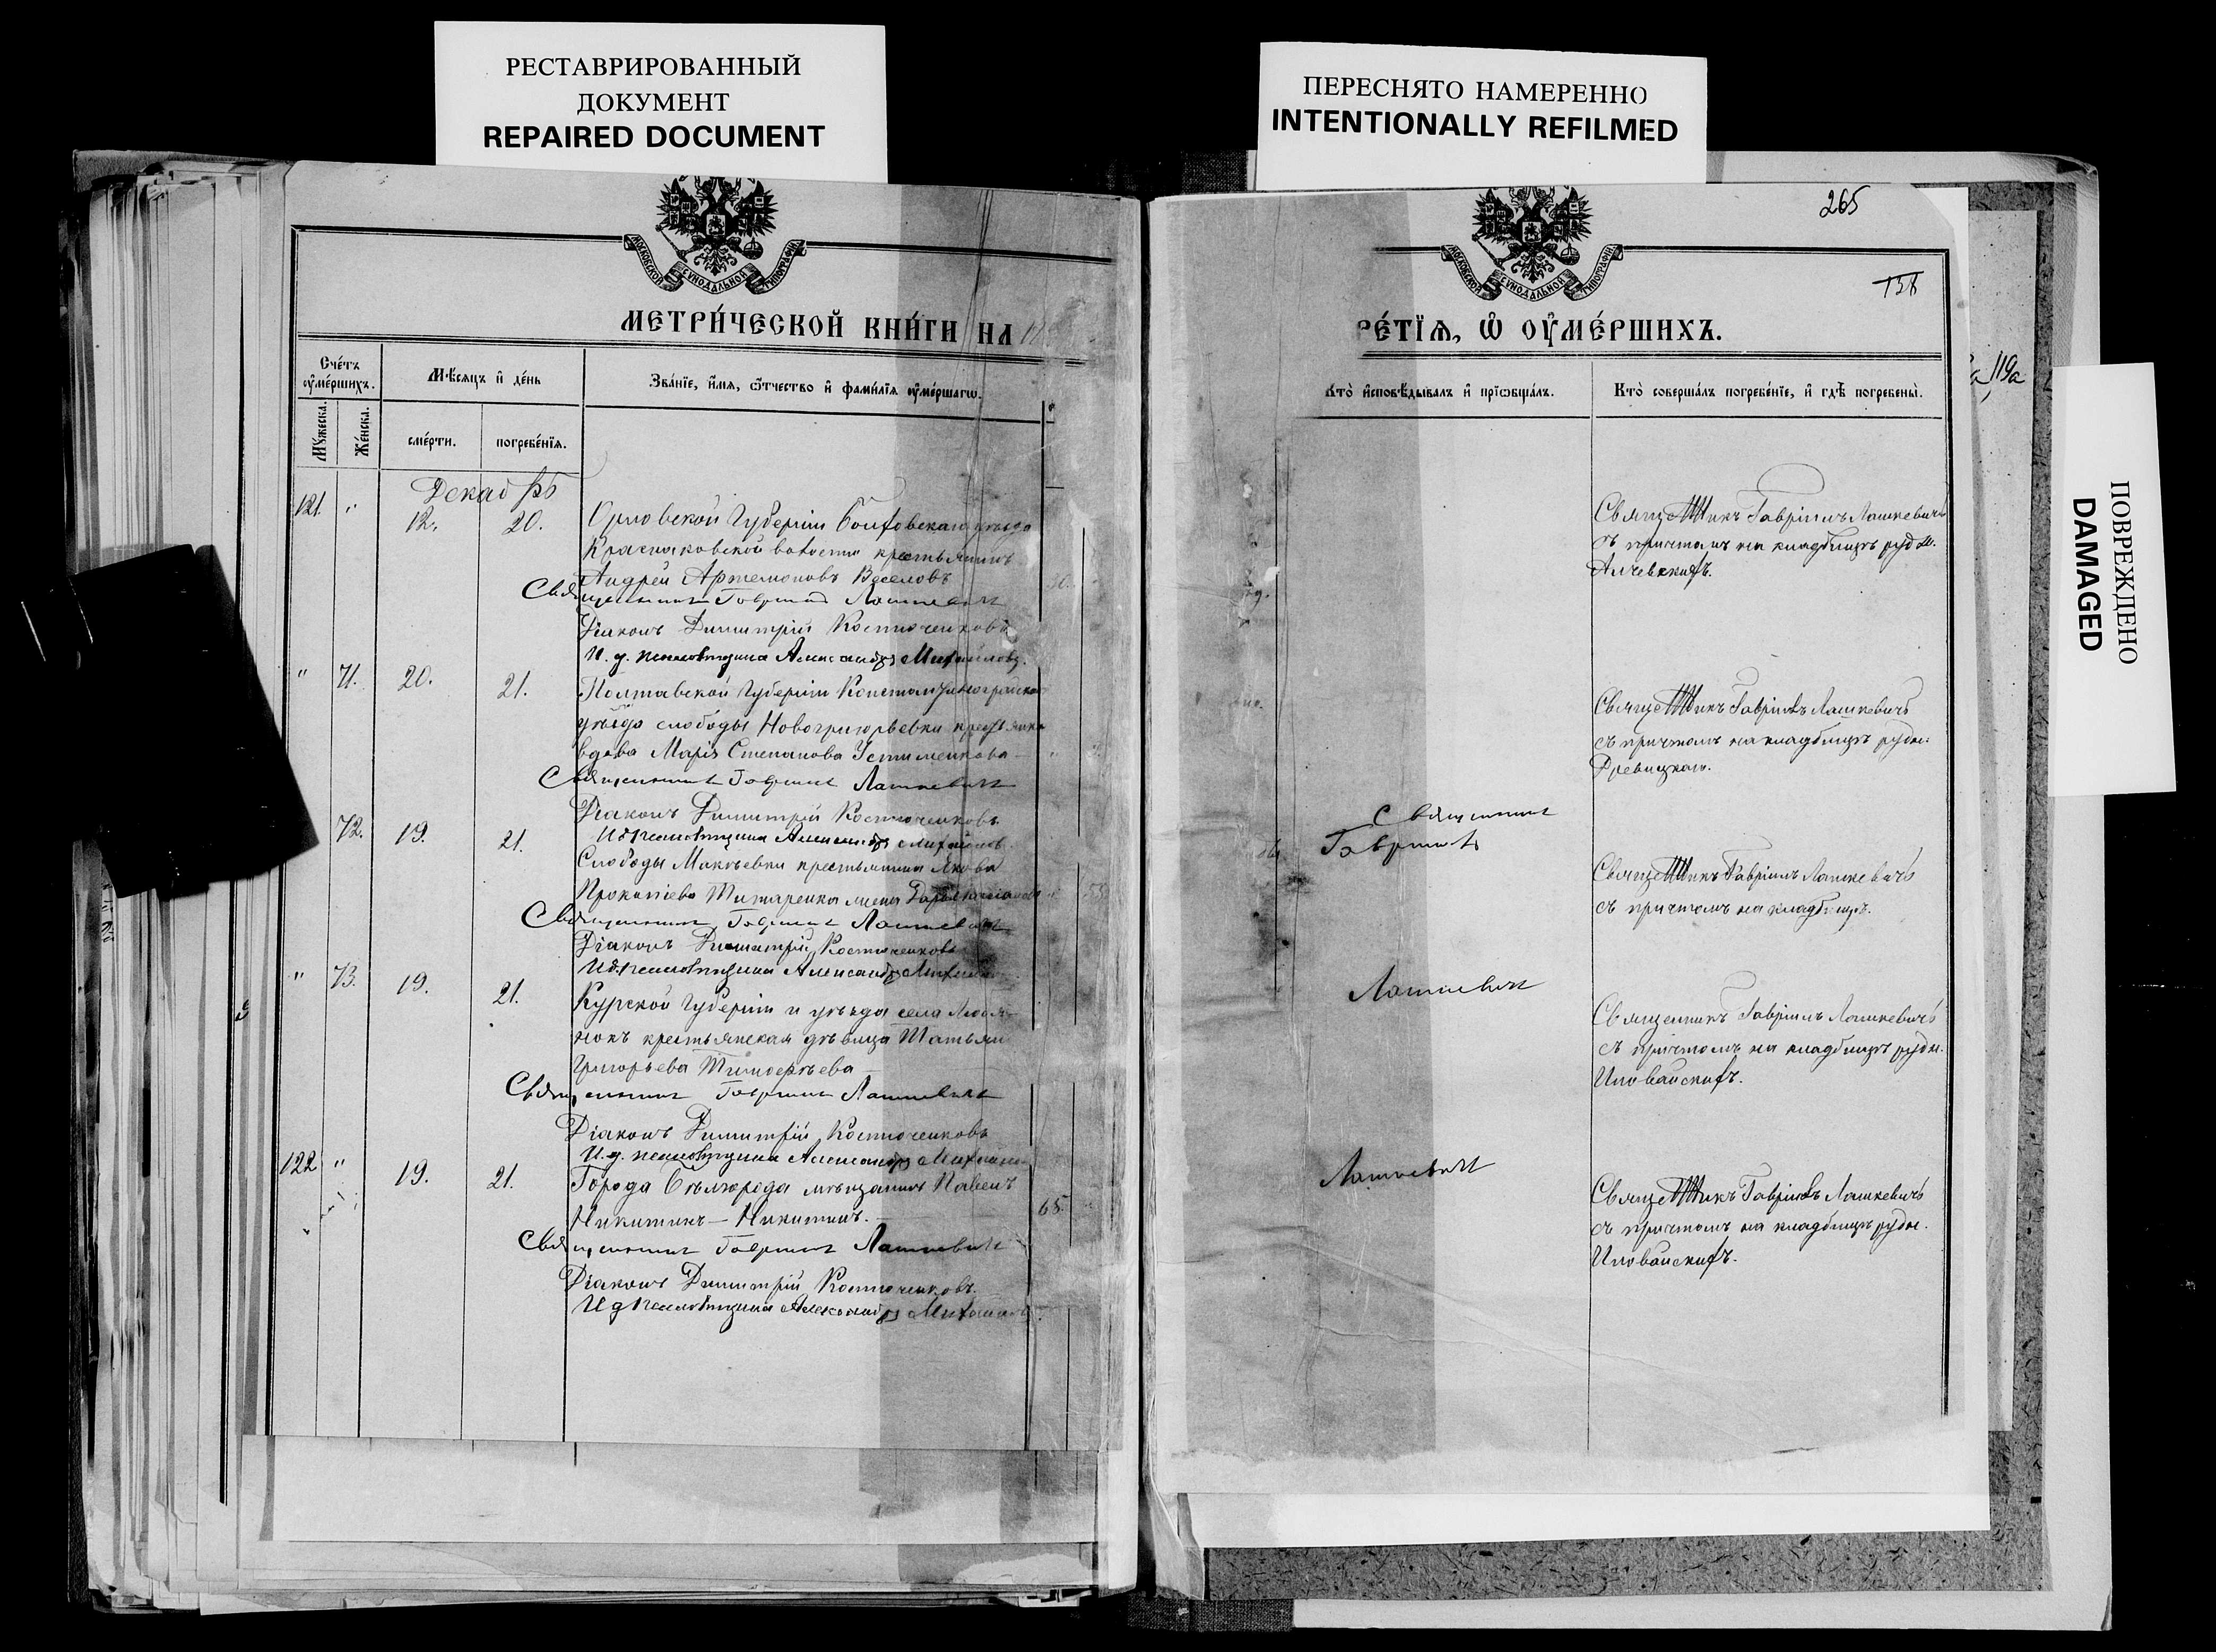 РЕСТАВРИРОВАННЫЙ
ДОКУМЕНТ
REPAIRED DOCUMENT
ПЕРЕСНЯТО НАМЕРЕННО
INTENTIONALLY REFILMED
ПОВРЕЖДЕНО
DAMAGED
МОСКОВСКОЙ СѴНОДАЛЬНОЙ ТИПОГРАФІИ
МЕТРИ́ЧЕСКОЙ КНИ́ГИ НА
Сче́тъ ᲂу҆ме́ршихъ.
Мѣ́сяцъ и҆ де́нь
Зва́нїе, и҆́мѧ, ѻ҆́тчество и҆ фами́лїѧ ᲂу҆ме́ршагѡ.
Мꙋ́жеска.
Же́нска.
сме́рти.
погребе́нїѧ.
Декабрь
121. " 12. 20. Орловской Губерніи Болховскаго уѣзда
волости крестьянинъ
Андрей Артемоновъ Веселовъ
Священникъ Гавріилъ Лашкевичъ
Діаконъ Димитрій Костюченковъ
И. д. псаломщика Александръ Михайловъ.
" 71. 20. 21. Полтавской Губерніи Константиноградскаго
уѣзда слободы Новогригорьевки крестьянка
вдова Марія Степанова Устименкова
Священникъ Гавріилъ Лашкевичъ
Діаконъ Димитрій Костюченковъ
И. д. псаломщика Александръ Михайловъ.
72. 19. 21. Слободы Макѣевки крестьянина Якова
Прокопіева Титаренка жена Дарья
Священникъ Гавріилъ Лашкевичъ
Діаконъ Димитрій Костюченковъ
И. д. псаломщика Александръ Михайловъ
" 73. 19. 21. Курской Губерніи и уѣзда села
крестьянская дѣвица Татьяна
Григорьева Тимофѣева
Священникъ Гавріилъ Лашкевичъ
Діаконъ Димитрій Костюченковъ
И. д. псаломщика Александръ Михайловъ
122 " 19. 21. Города Бѣлгорода мѣщанинъ Павелъ
Никитинъ — Никитинъ. 65.
Священникъ Гавріилъ Лашкевичъ
Діаконъ Димитрій Костюченковъ.
И д псаломщика Александръ Михайловъ.
265
158
МОСКОВСКОЙ СѴНОДАЛЬНОЙ ТИПОГРАФІИ
РЕ́ТЇѦ, Ѡ҆ ОУ҆МЕ́РШИХЪ.
Кто̀ и҆сповѣ́дывалъ и҆ прїѡбща́лъ.
Кто̀ соверша́лъ погребе́нїе, и҆ гдѣ̀ погребены̀.
Священникъ Гавріилъ Лашкевичъ
съ причтомъ на кладбищѣ рудн.
Алчевскихъ.
Священникъ Гавріилъ Лашкевичъ
съ причтомъ на кладбищѣ рудн.
Древицкаго.
Священникъ
Гавріилъ
Священникъ Гавріилъ Лашкевичъ
съ причтомъ на кладбищѣ.
Лашкевичъ
Священникъ Гавріилъ Лашкевичъ
съ причтомъ на кладбищѣ рудн.
Иловайскихъ.
Лашкевичъ
Священникъ Гавріилъ Лашкевичъ
съ причтомъ на кладбищѣ рудн.
Иловайскихъ.
119а